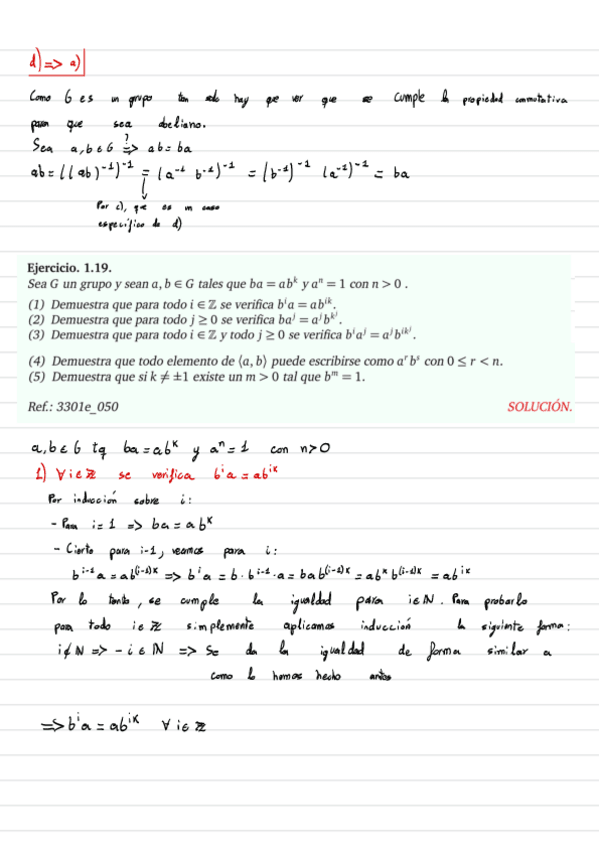 d) => a)
Como G es un grupo tan solo hay que ver que se cumple la propiedad conmutativa
para que sea abeliano.
Sea a, b ∈ G ?=> ab = ba
ab = ((ab)⁻¹)⁻¹ = (a⁻¹ b⁻¹)⁻¹ = (b⁻¹)⁻¹ (a⁻¹)⁻¹ = ba
Por c), que es un caso
específico de d)
Ejercicio. 1.19.
Sea G un grupo y sean a, b ∈ G tales que ba = abᵏ y aⁿ = 1 con n > 0 .
(1) Demuestra que para todo i ∈ ℤ se verifica bⁱa = abⁱᵏ.
(2) Demuestra que para todo j ≥ 0 se verifica baʲ = aʲb^{kʲ}.
(3) Demuestra que para todo i ∈ ℤ y todo j ≥ 0 se verifica bⁱaʲ = aʲb^{ikʲ}.
(4) Demuestra que todo elemento de ⟨a, b⟩ puede escribirse como aʳbˢ con 0 ≤ r < n.
(5) Demuestra que si k ≠ ±1 existe un m > 0 tal que bᵐ = 1.
Ref.: 3301e_050 SOLUCIÓN.
a, b ∈ G tq ba = abᵏ y aⁿ = 1 con n>0
1) ∀ i ∈ ℤ se verifica bⁱa = abⁱᵏ
Por inducción sobre i:
- Para i = 1 => ba = abᵏ
- Cierto para i-1, veamos para i:
bⁱ⁻¹a = ab⁽ⁱ⁻¹⁾ᵏ => bⁱa = b · bⁱ⁻¹ · a = bab⁽ⁱ⁻¹⁾ᵏ = abᵏ b⁽ⁱ⁻¹⁾ᵏ = abⁱᵏ
Por lo tanto, se cumple la igualdad para i∈ℕ. Para probarlo
para todo i∈ℤ simplemente aplicamos inducción la siguiente forma:
i∉ℕ => -i∈ℕ => Se da la igualdad de forma similar a
como lo hemos hecho antes
=> bⁱa = abⁱᵏ ∀ i∈ℤ